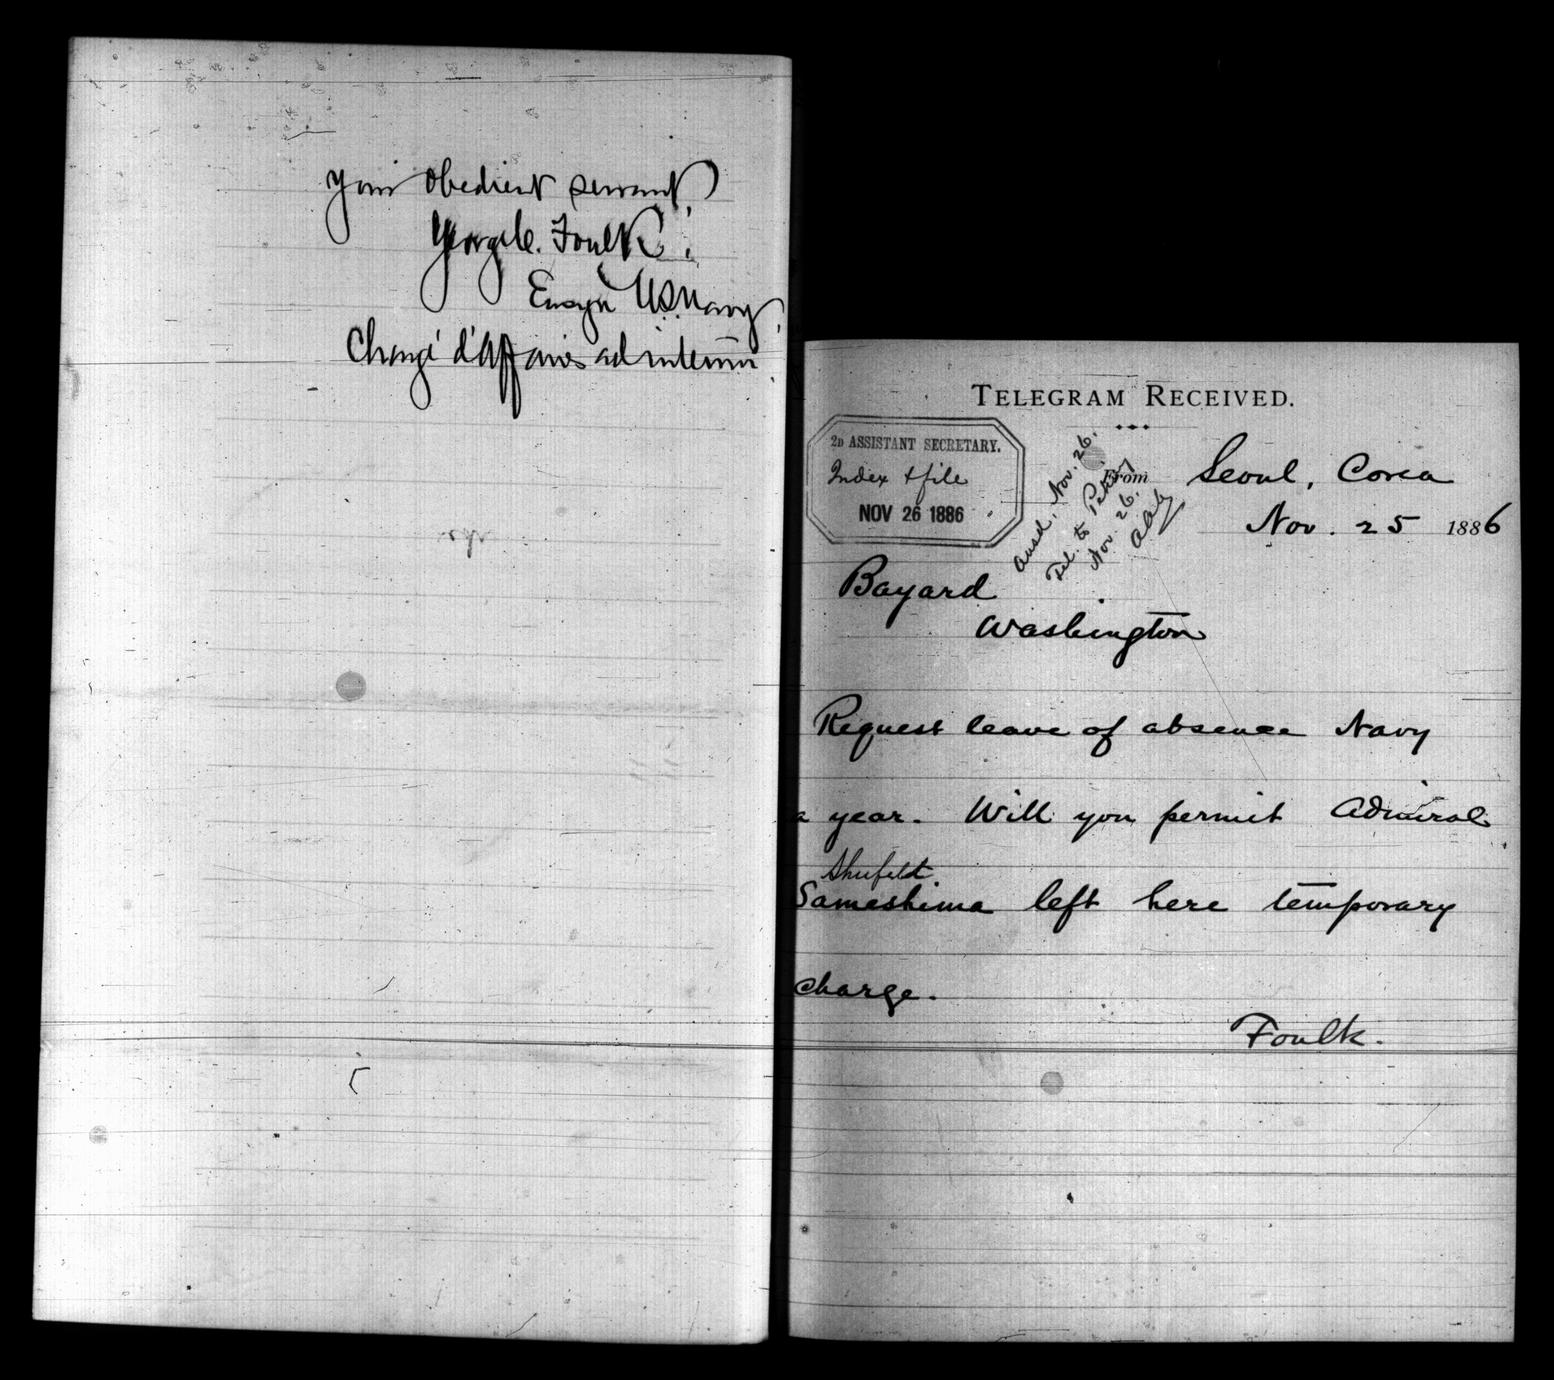 Your obedient servant,
George C. Foulk.
Ensign U.S. Navy,
Chargé d'Affaires ad interim.
TELEGRAM RECEIVED.
2D ASSISTANT SECRETARY.
Index & file
NOV 26 1886
Ansd. Nov. 26.
Tel. to Peking
Nov. 26.
From Seoul, Corea
Nov. 25 1886
Bayard
Washington
Request leave of absence Navy
a year. Will you permit Admiral
Shufeldt
Sameshima left here temporary
charge.
Foulk.